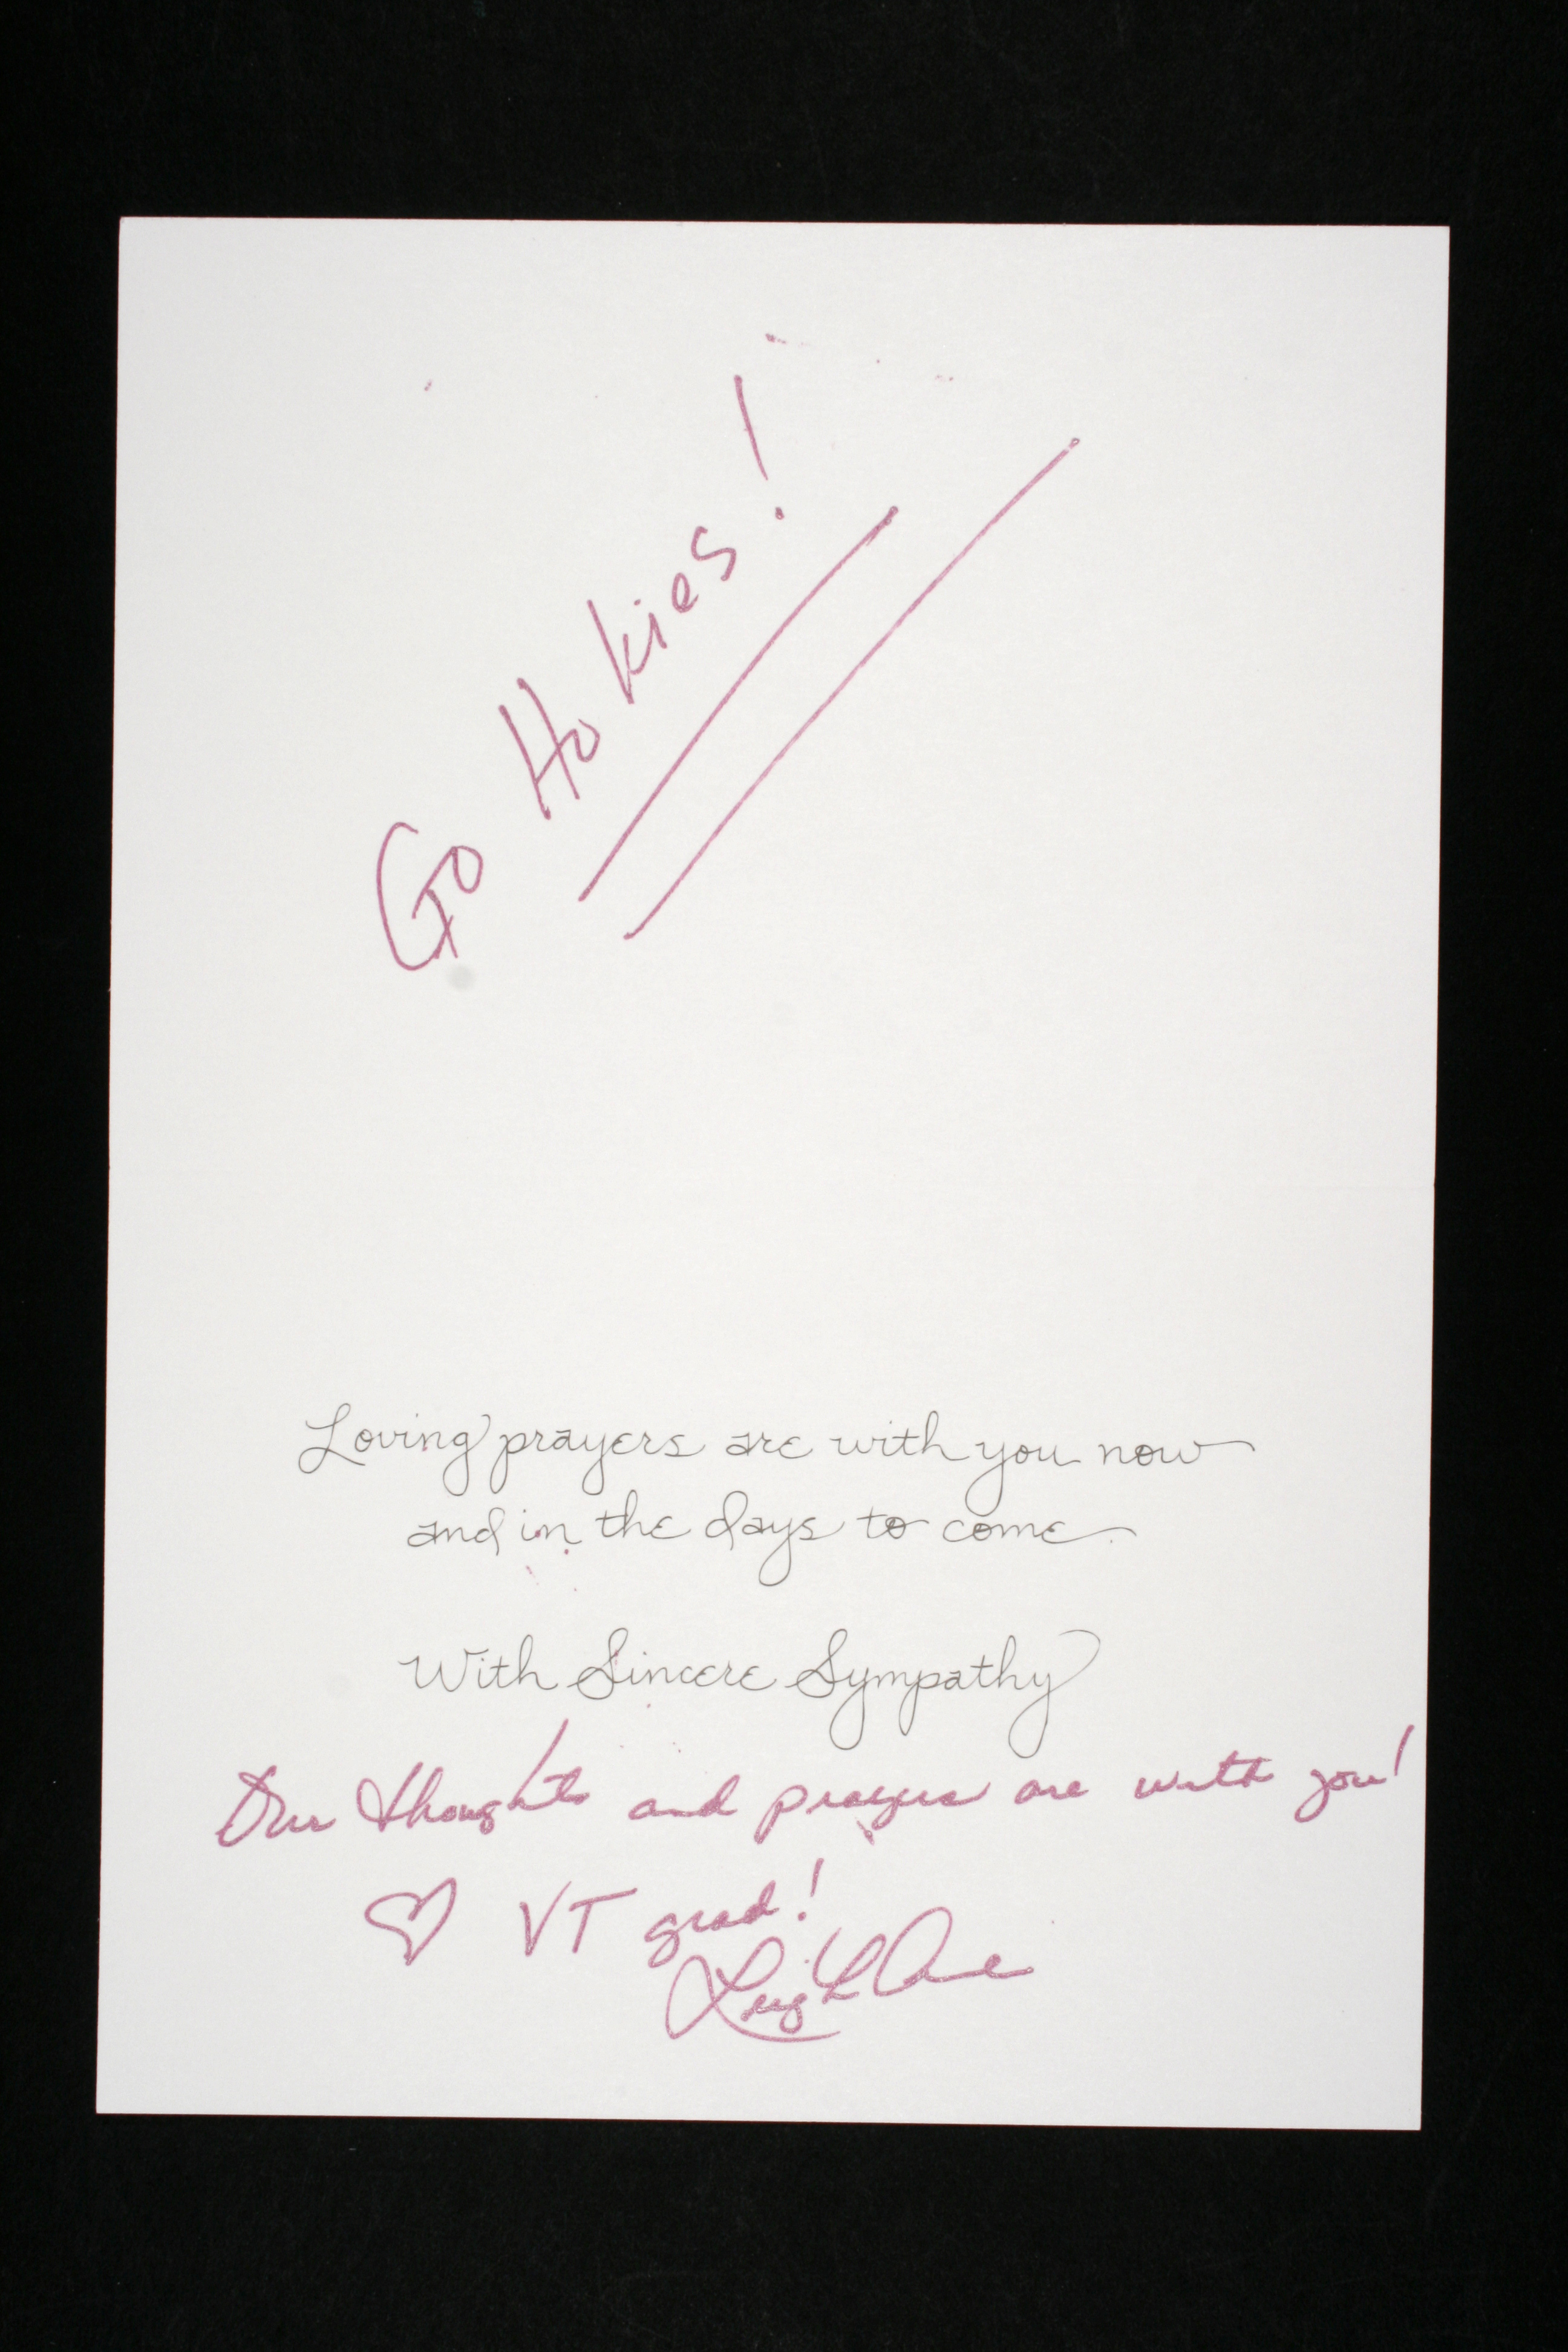 Go Hokies!
Loving prayers are with you now
and in the days to come.
With Sincere Sympathy
Our thoughts and prayers are with you!
♡ VT grad!
Leigh Ane